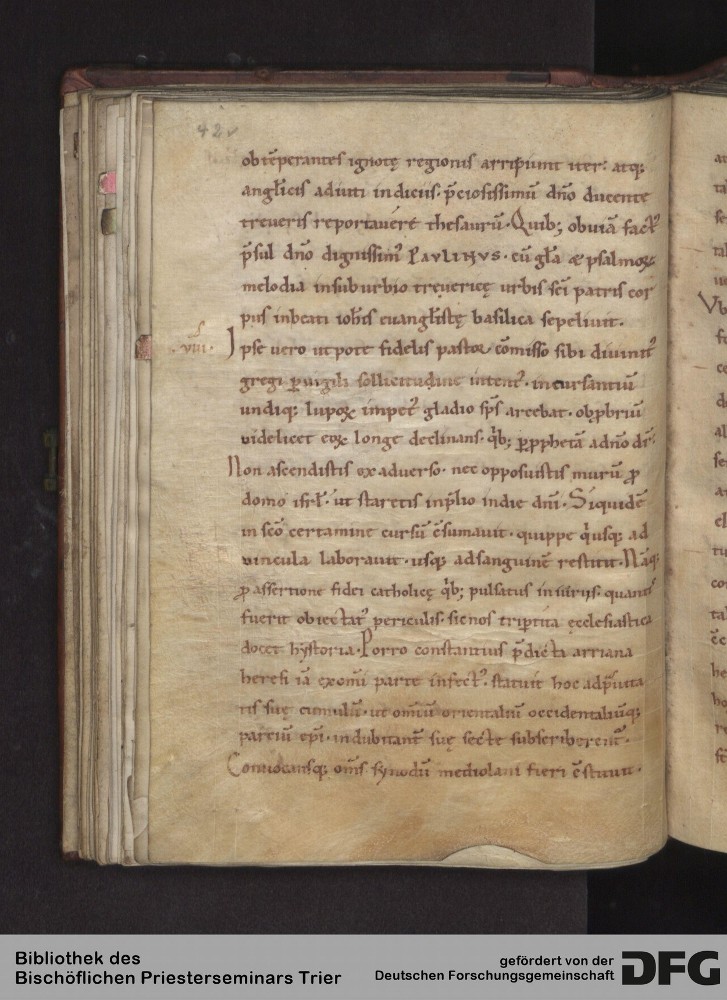 42v
obtēperantes ignotę regionis arripiunt iter· atq;
anglicis adiuti indiciis· p̄ciosissimū dn̄o ducente
treueris reportauere thesaurū· Quib; obuiā fact᾽
p̄sul dn̄o dignissim᾽ PAVLINVS· cū gl̄a & psalmoꝝ
melodia insuburbio treuericę urbis sc̄i patris cor
pus inbeati ioh̄is euangl̄istę basilica sepeliuit·
·viii· Ipse uero utpote fidelis pastor cōmisso sibi diuinit᾽
gregi ꝑuigili sollicitudine intent᾽· incursantiū
undiq; lupoꝝ impet᾽ gladio sp̄s arcebat· obꝓbriū
uidelicet eoꝝ longe declinans· q̇b; ꝑ ꝓphetā adn̄o dr̄·
Non ascendistis ex aduerso· nec opposuistis murū ꝓ
domo isrl̄· ut staretis inp̄lio in die dn̄i· Siquidē
in sc̄o certamine cursū c̄sumauit· quippe q̇ usq; ad
uincula laborauit· usq; ad sanguinē restitit· Nāq;
ꝓ assertione fidei catholicę q̇b; pulsatus iniuriis· quantis
fuerit obiectat᾽ periculis· sic nos tripertita ęcclesiastica
docet hystoria· Porro constantius p̄dicta arriana
heresi iā exomī parte infect᾽· statuit hoc ad p̄uita
tis suę cumulū· ut om̄iū orientaliū occidentaliūq;
partiū ep̄i· indubitant̄ suę sectę subscriberent᾽·
Conuocansq; om̄s· synodū mediolani fieri c̄stituit·
Bibliothek des
Bischöflichen Priesterseminars Trier
gefördert von der
Deutschen Forschungsgemeinschaft
DFG